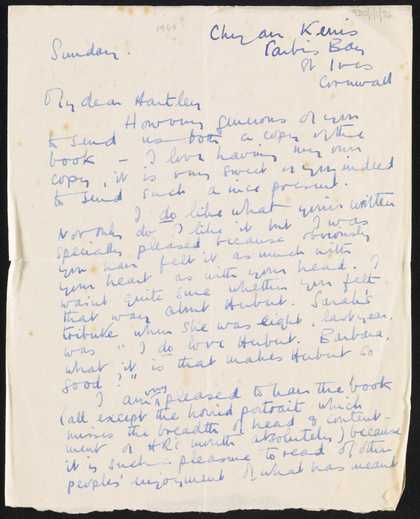 1944
Chy an Kerris
Sunday.
Carbis Bay
St Ives
Cornwall
My dear Hartley
How very generous of you
to send us both a copy of the
book – I love having my own
copy, it is very sweet of you indeed
to send such a nice present.
I do like what you've written
Not only do I like it but I was
specially pleased because obviously
you have felt it as much with
your heart as with your head. I
wasn't quite sure whether you felt
that way about Herbert. Sarah's
tribute when she was eight, last year,
was "I do love Herbert. Barbara,
what it is that makes Herbert so
good?"
I am very pleased to have the book
(all except the horrid portrait which
misses the breadth of head & content-
ment of HR's mouth absolutely) because
it is such pleasure to read of other
peoples' enjoyment of what has meant